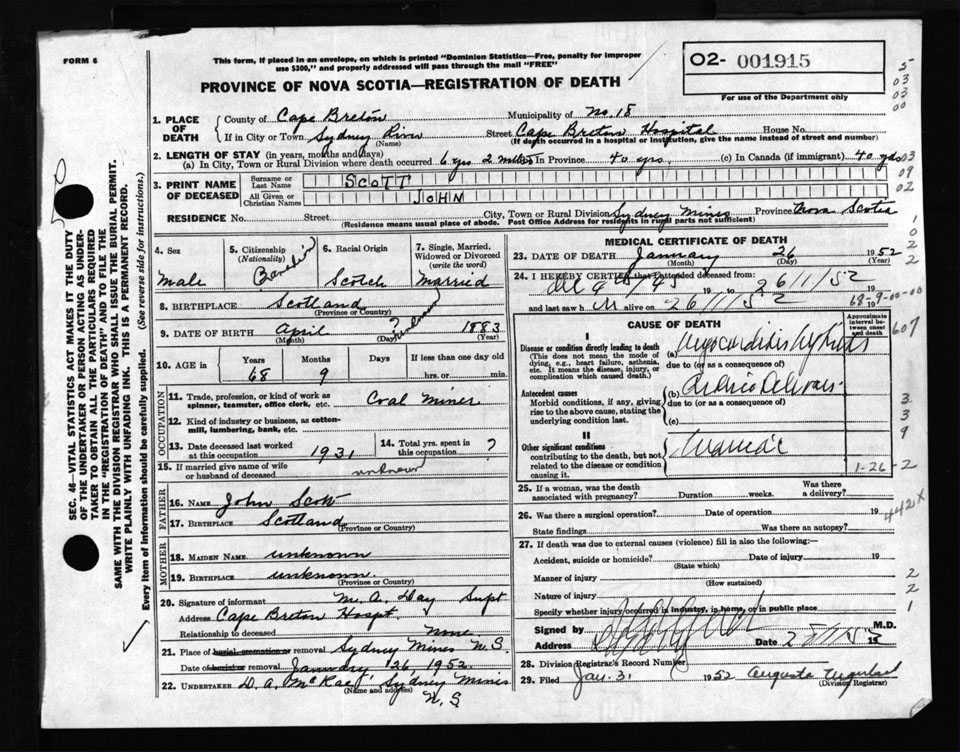 FORM 6
This form, if placed in an envelope, on which is printed "Dominion Statistics—Free, penalty for improper
use $300," and properly addressed will pass through the mail "FREE"
O2- 001915
For use of the Department only
PROVINCE OF NOVA SCOTIA—REGISTRATION OF DEATH
5
03
03
00
1. PLACE OF DEATH
County of Cape Breton Municipality of No. 18
If in City or Town Sydney River (Name) Street Cape Breton Hospital House No.
(If death occurred in a hospital or institution, give the name instead of street and number)
2. LENGTH OF STAY (in years, months and days)
(a) In City, Town or Rural Division where death occurred 6 yrs 2 mths (b) In Province 40 yrs. (c) In Canada (if immigrant) 40 yrs
03
09
02
3. PRINT NAME OF DECEASED
Surname or Last Name SCOTT
All Given or Christian Names JOHN
RESIDENCE No. Street City, Town or Rural Division Sydney Mines Province Nova Scotia
(Residence means usual place of abode. Post Office Address for residents in rural parts not sufficient)
4. Sex
male
5. Citizenship (Nationality)
Canadian
6. Racial Origin
Scotch
7. Single, Married, Widowed or Divorced (write the word)
married
8. BIRTHPLACE Scotland
(Province or Country)
9. DATE OF BIRTH April ? unknown 1883
(Month) (Day) (Year)
10. AGE in
Years Months Days If less than one day old
68 9 hrs. or min.
OCCUPATION
11. Trade, profession, or kind of work as
spinner, teamster, office clerk, etc. Coal Miner
12. Kind of industry or business, as cotton-
mill, lumbering, bank, etc.
13. Date deceased last worked
at this occupation 1931
14. Total yrs. spent in
this occupation ?
15. If married give name of wife
or husband of deceased unknown
FATHER
16. NAME John Scott
17. BIRTHPLACE Scotland
(Province or Country)
MOTHER
18. MAIDEN NAME unknown
19. BIRTHPLACE unknown.
(Province or Country)
20. Signature of informant M. A. Day Supt
Address Cape Breton Hospt.
Relationship to deceased None
21. Place of burial cremation or removal Sydney Mines N.S.
Date of burial or removal January 26 1952.
22. UNDERTAKER D. A. McRae, Sydney Mines
(Name and address)
N.S.
MEDICAL CERTIFICATE OF DEATH
23. DATE OF DEATH January 26 1952
(Month) (Day) (Year)
24. I HEREBY CERTIFY that I attended deceased from:
19 to 26/1/52
and last saw h alive on 26/1/52 19
68-9-00-00
CAUSE OF DEATH
Approximate interval between onset and death
607
I
Disease or condition directly leading to death
(This does not mean the mode of
dying, e.g., heart failure, asthenia,
etc. It means the disease, injury, or
complication which caused death.)
(a)
due to (or as a consequence of)
Antecedent causes
Morbid conditions, if any, giving
rise to the above cause, stating the
underlying condition last.
(b)
due to (or as a consequence of)
(c)
3
3
9
II
Other significant conditions
contributing to the death, but not
related to the disease or condition
causing it.
1-26-2
25. If a woman, was the death
associated with pregnancy? Duration weeks. Was there
a delivery?
26. Was there a surgical operation? Date of operation 19
State findings Was there an autopsy?
442X
27. If death was due to external causes (violence) fill in also the following:—
Accident, suicide or homicide? Date of injury 19
(State which)
Manner of injury
(How sustained)
Nature of injury
Specify whether injury occurred in industry, in home, or in public place
2
2
1
Signed by M.D.
Address Date
28. Division Registrar's Record Number
29. Filed Jan. 31 1952 Augusta
(Division Registrar)
SEC. 46—VITAL STATISTICS ACT MAKES IT THE DUTY
OF THE UNDERTAKER OR PERSON ACTING AS UNDER-
TAKER TO OBTAIN ALL THE PARTICULARS REQUIRED
IN THE "REGISTRATION OF DEATH" AND TO FILE THE
SAME WITH THE DIVISION REGISTRAR WHO SHALL ISSUE THE BURIAL PERMIT.
WRITE PLAINLY WITH UNFADING INK. THIS IS A PERMANENT RECORD.
Every item of information should be carefully supplied. (See reverse side for instructions.)